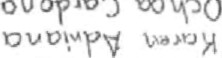 Karen Adriana
Ochoa Cardona